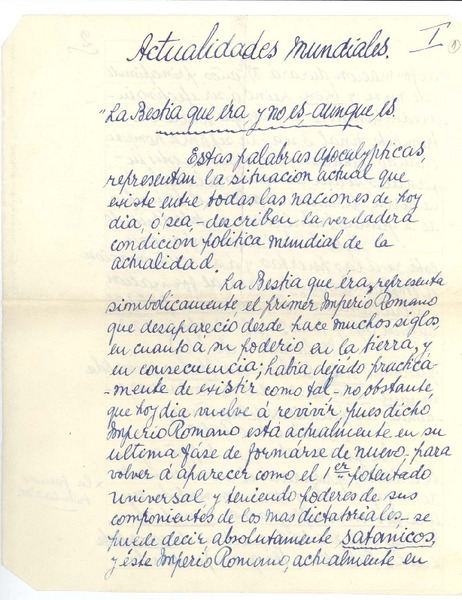 Actualidades Mundiales. I 1
"La Bestia que era, y no es, aunque es.
Estas palabras apocalypticas,
representan la situación actual que
existe entre todas las naciones de hoy
dia, ó sea,- describen la verdadera
condición politica mundial de la
actualidad.
La Bestia que éra, representa
simbolicamente el primer Imperio Romano
que desapareció desde hace muchos siglos,
en cuanto á su poderio en la tierra, y
en consecuencia; habia dejádo practica
-mente de existir como tal- no obstante
que hoy dia vuelve á revivir, pues dichó
Imperio Romano está actualmente en su
última fáse de formarse de nuevo- para
volver á aparecer como el 1er potentado
universal y teniendo poderes de sus
componientes de los mas dictatoriales- se
puede decir absolutamente satánicos,
y éste Imperio Romano, actualmente en